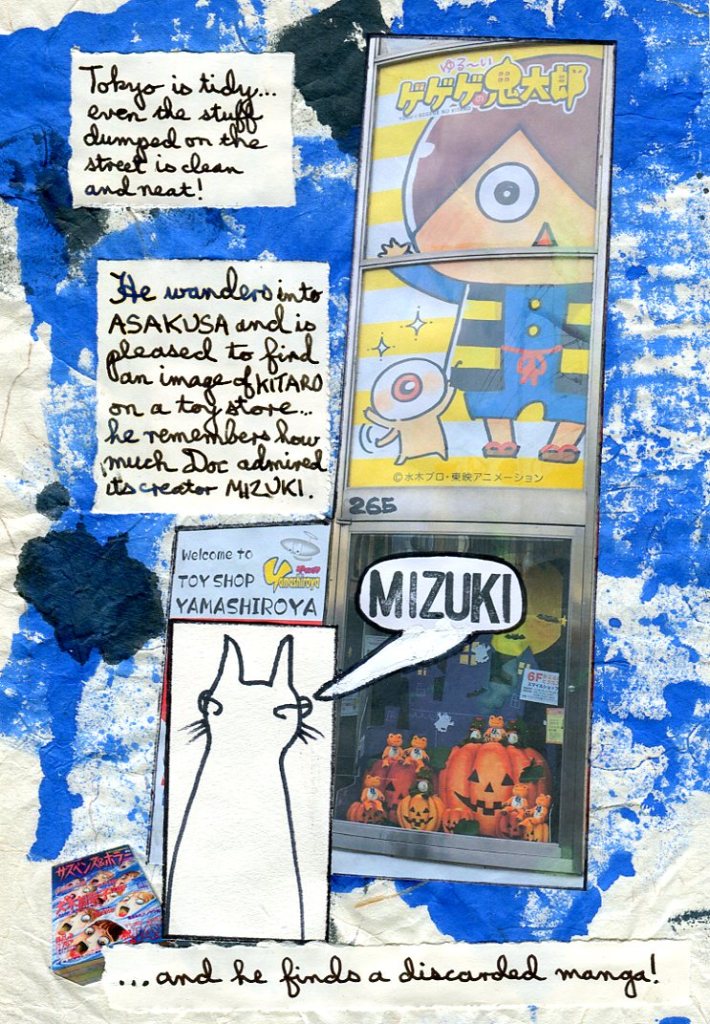 Tokyo is tidy...
even the stuff
dumped on the
street is clean
and neat!
ゆる〜い
ゲゲゲの鬼太郎
He wanders into
ASAKUSA and is
pleased to find
an image of KITARO
on a toy store...
he remembers how
much Doc admired
its creator MIZUKI.
©水木プロ・東映アニメーション
265
Welcome to
TOY SHOP
Yamashiroya
YAMASHIROYA
MIZUKI
6F
サスペンス&ホラー
...and he finds a discarded manga!